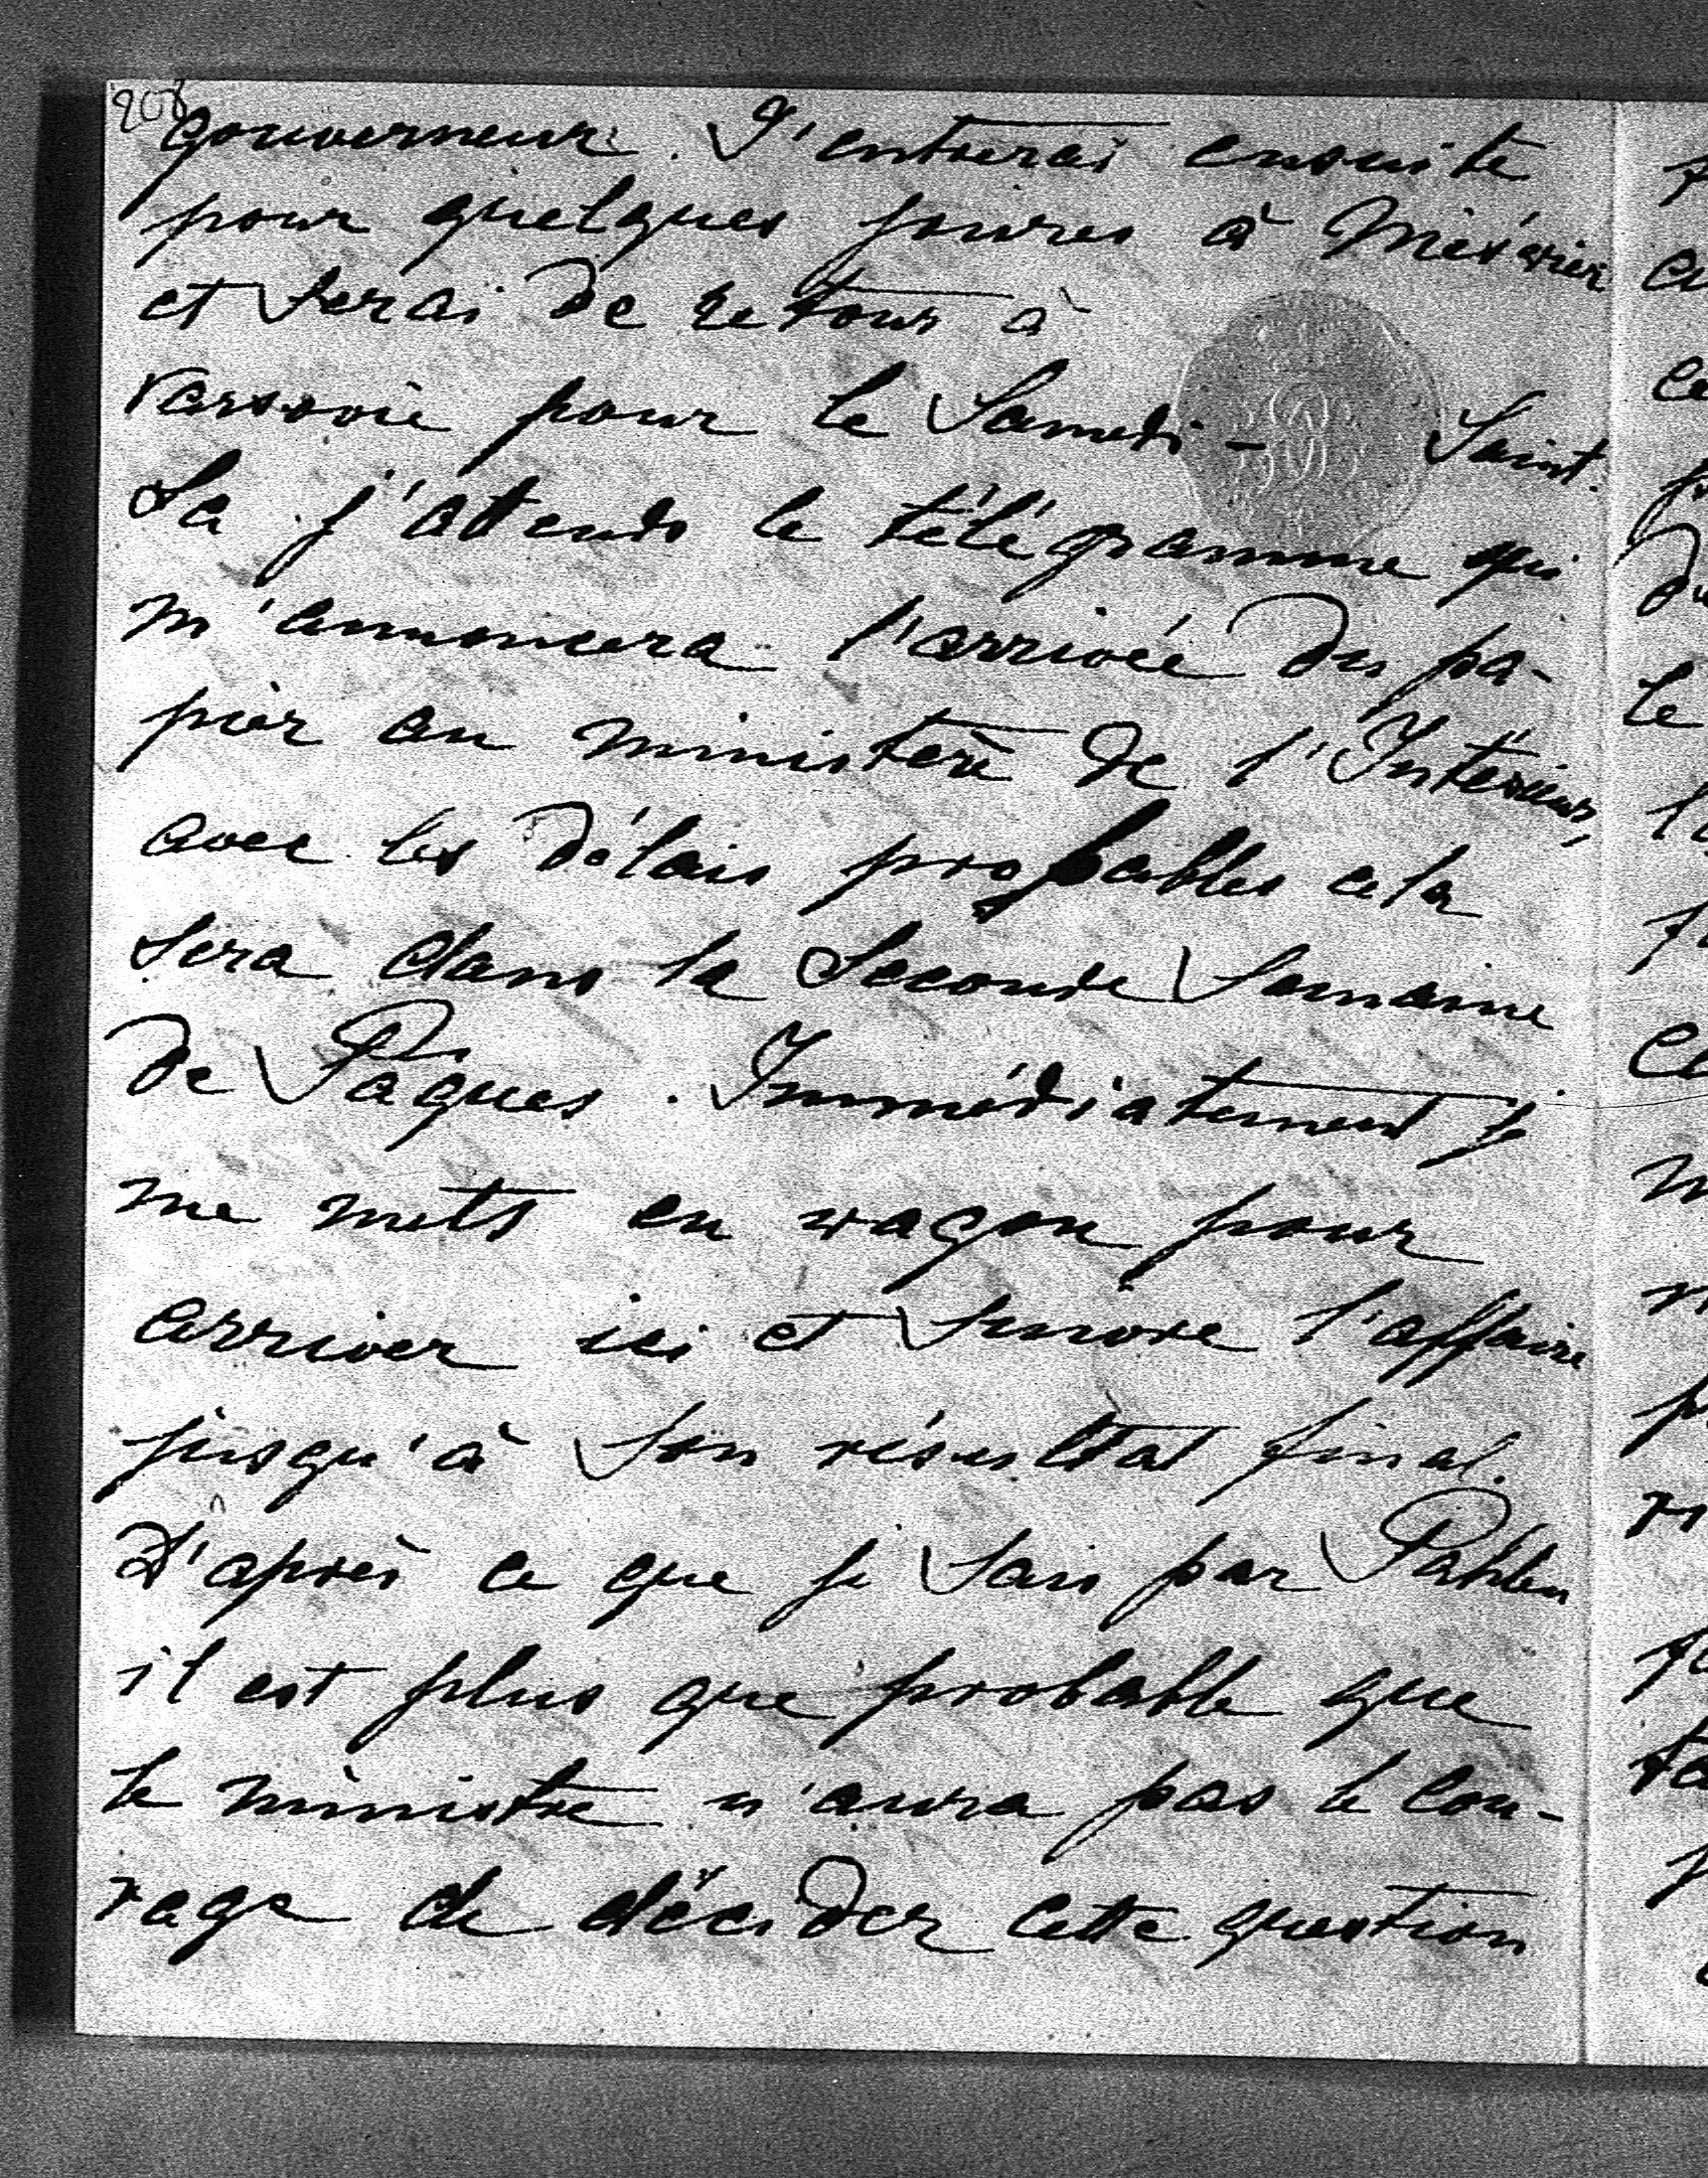 208
gouverneur. J'entrerai ensuite
pour quelques jours à
et serai de retour à
Varsovie pour le Samedi-Saint.
La j'attends le télégramme qui
m'annoncera l'arrivée du pa-
pier au ministère de l'Intérieur,
avec les délais probables cela
sera dans la seconde semaine
de Pâques. Immédiatement je
me mets en wagon pour
arriver ici et suivre l'affaire
jusqu'à son résultat final.
D'après ce que je sais par Pahlen
il est plus que probable que
le ministre n'aura pas le cou-
rage de décider cette question